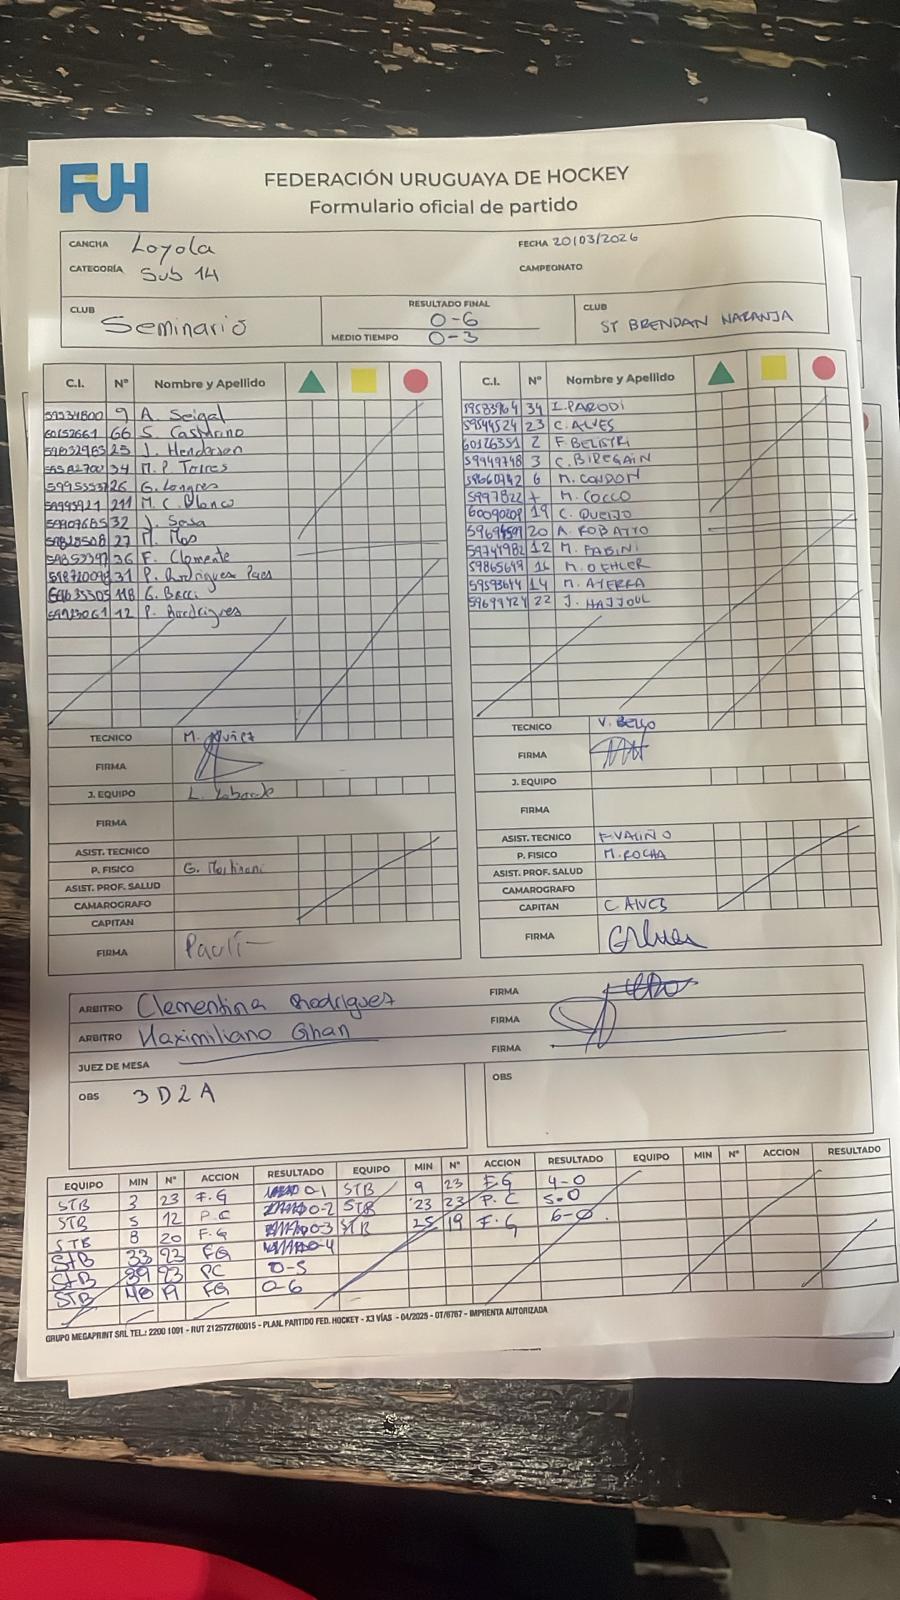 FUH
FEDERACIÓN URUGUAYA DE HOCKEY
Formulario oficial de partido
CANCHA Loyola FECHA 20/03/2026
CATEGORÍA Sub 14 CAMPEONATO
CLUB Seminario
RESULTADO FINAL 0-6
MEDIO TIEMPO 0-3
CLUB ST BRENDAN NARANJA
C.I. Nº Nombre y Apellido
9 A. Seigal
66 S.
25 J. Henderson
34 M. P. Torres
26 G. Longres
211 M. C. Blanco
32 J. Sosa
27 M. Mas
36 F. Clemente
31 P. Rodriguez Paes
118 G. Bacci
12 P. Rodrigues
TECNICO M.
FIRMA
J. EQUIPO L.
FIRMA
ASIST. TECNICO
P. FISICO G.
ASIST. PROF. SALUD
CAMAROGRAFO
CAPITAN
FIRMA
C.I. Nº Nombre y Apellido
34 I. PARODI
59544524 23 C. ALVES
60126351 2 F.
59449748 3 C. BIREGAIN
6 M. CONDON
M. COCCO
19 C. QUEIJO
20 A. ROBATTO
59744982 12 M. FABINI
59865649 16 M. OEHLER
14 M. AYERRA
22 J. HAJJOUL
TECNICO V. BELLO
FIRMA
J. EQUIPO
FIRMA
ASIST. TECNICO F. VALIÑO
P. FISICO M. ROCHA
ASIST. PROF. SALUD
CAMAROGRAFO
CAPITAN C. ALVES
FIRMA
ARBITRO Clementina Rodriguez FIRMA
ARBITRO Maximiliano Ghan FIRMA
JUEZ DE MESA FIRMA
OBS 3D2A
OBS
EQUIPO MIN Nº ACCION RESULTADO EQUIPO MIN Nº ACCION RESULTADO EQUIPO MIN Nº ACCION RESULTADO
STB 3 23 F.G 0-1 STB 9 23 F.G 4-0
STB 5 12 P.C 0-2 STB 23 23 P.C 5-0
STB 8 20 F.G 0-3 STB 25 19 F.G 6-0
STB 33 23 FG 0-4
STB 39 23 PC 0-5
STB 48 19 FG 0-6
GRUPO MEGAPRINT SRL TEL.: 2200 1091 - RUT 212572760015 - PLAN. PARTIDO FED. HOCKEY - X3 VÍAS - 04/2025 - OT/6767 - IMPRENTA AUTORIZADA